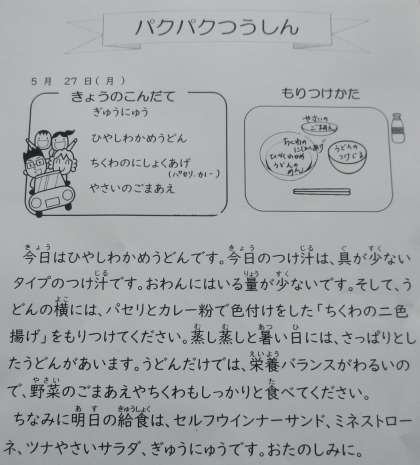 パクパクつうしん
5月 27日(月)
きょうのこんだて
ぎゅうにゅう
ひやしわかめうどん
ちくわのにしょくあげ
(パセリ、カレー)
やさいのごまあえ
もりつけかた
やさいの
ごまあえ
ちくわの
にしょくあげ
ひやしわかめ
うどんの
めん
うどんの
つけじる
今日はひやしわかめうどんです。今日のつけ汁は、具が少ない
タイプのつけ汁です。おわんにはいる量が少ないです。そして、う
どんの横には、パセリとカレー粉で色付けをした「ちくわの二色
揚げ」をもりつけてください。蒸し蒸しと暑い日には、さっぱりとし
たうどんがあいます。うどんだけでは、栄養バランスがわるいの
で、野菜のごまあえやちくわもしっかりと食べてください。
ちなみに明日の給食は、セルフウインナーサンド、ミネストロー
ネ、ツナやさいサラダ、ぎゅうにゅうです。おたのしみに。